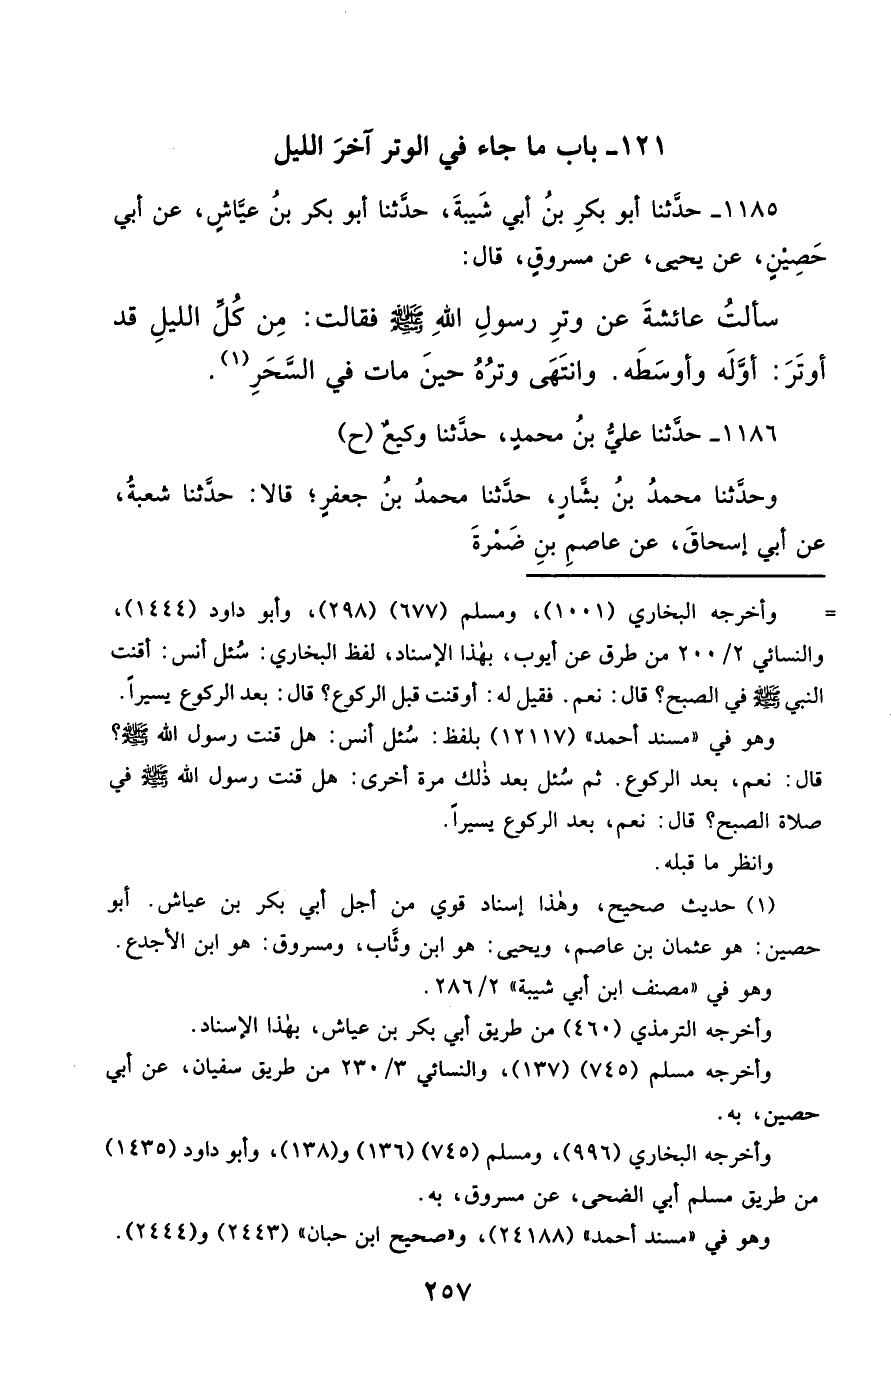 ١٢١ـ باب ما جاء في الوتر آخرَ الليل
١١٨٥ـ حدَّثنا أبو بكرِ بنُ أبي شَيبةَ، حدَّثنا أبو بكر بنُ عيَّاشٍ، عن أبي
حَصِيْنٍ، عن يحيى، عن مسروقٍ، قال:
سألتُ عائشةَ عن وترِ رسولِ اللهِ ﷺ فقالت: مِن كُلِّ الليلِ قد
أوتَرَ: أوَّلَه وأوسَطَه. وانتَهَى وترُهُ حينَ مات في السَّحَرِ(١).
١١٨٦ـ حدَّثنا عليُّ بنُ محمدٍ، حدَّثنا وكيعٌ (ح)
وحدَّثنا محمدُ بنُ بشَّارٍ، حدَّثنا محمدُ بنُ جعفرٍ؛ قالا: حدَّثنا شعبةُ،
عن أبي إسحاقَ، عن عاصمِ بنِ ضَمْرةَ
= وأخرجه البخاري (١٠٠١)، ومسلم (٦٧٧) (٢٩٨)، وأبو داود (١٤٤٤)،
والنسائي ٢/ ٢٠٠ من طرق عن أيوب، بهٰذا الإسناد، لفظ البخاري: سُئل أنس: أقنت
النبي ﷺ في الصبح؟ قال: نعم. فقيل له: أوقنت قبل الركوع؟ قال: بعد الركوع يسيراً.
وهو في «مسند أحمد» (١٢١١٧) بلفظ: سُئل أنس: هل قنت رسول الله ﷺ؟
قال: نعم، بعد الركوع. ثم سُئل بعد ذٰلك مرة أخرى: هل قنت رسول الله ﷺ في
صلاة الصبح؟ قال: نعم، بعد الركوع يسيراً.
وانظر ما قبله.
(١) حديث صحيح، وهٰذا إسناد قوي من أجل أبي بكر بن عياش. أبو
حصين: هو عثمان بن عاصم، ويحيى: هو ابن وثَّاب، ومسروق: هو ابن الأجدع.
وهو في «مصنف ابن أبي شيبة» ٢/ ٢٨٦.
وأخرجه الترمذي (٤٦٠) من طريق أبي بكر بن عياش، بهٰذا الإسناد.
وأخرجه مسلم (٧٤٥) (١٣٧)، والنسائي ٣/ ٢٣٠ من طريق سفيان، عن أبي
حصين، به.
وأخرجه البخاري (٩٩٦)، ومسلم (٧٤٥) (١٣٦) و(١٣٨)، وأبو داود (١٤٣٥)
من طريق مسلم أبي الضحى، عن مسروق، به.
وهو في «مسند أحمد» (٢٤١٨٨)، و«صحيح ابن حبان» (٢٤٤٣) و(٢٤٤٤).
٢٥٧